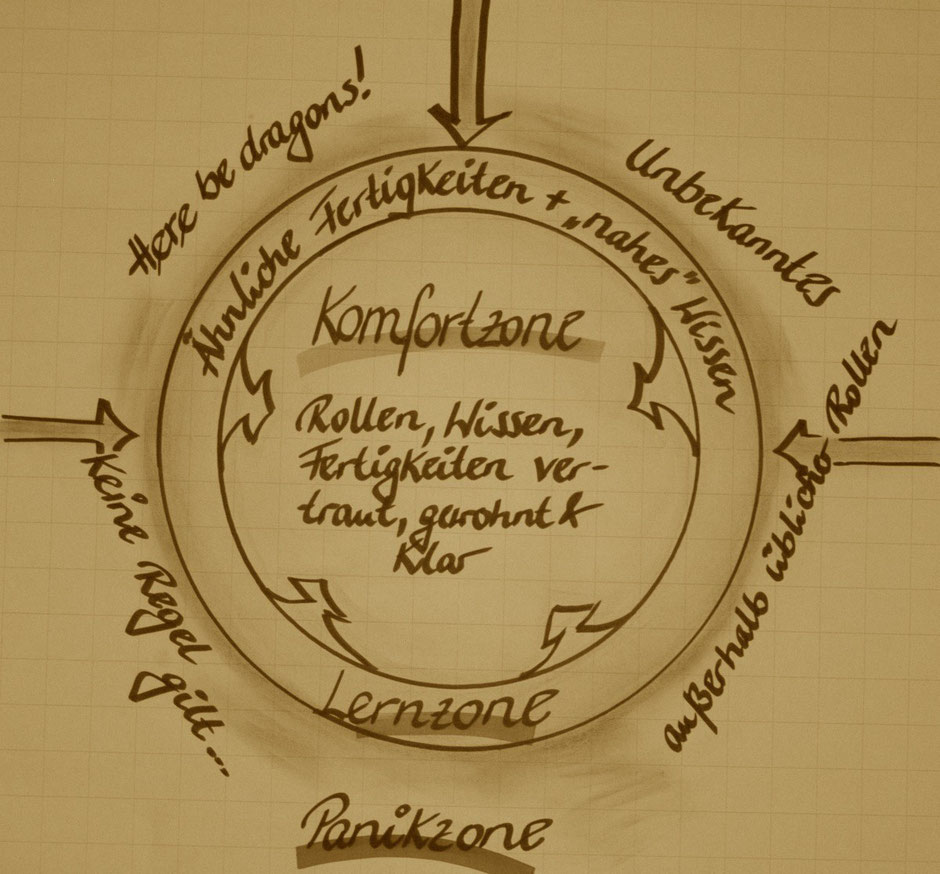 Here be dragons!
Unbekanntes
Ähnliche Fertigkeiten + „nahes“ Wissen
Komfortzone
Rollen, Wissen,
Fertigkeiten ver-
traut, gewohnt &
klar
Keine Regel gilt...
außerhalb üblicher Rollen
Lernzone
Panikzone